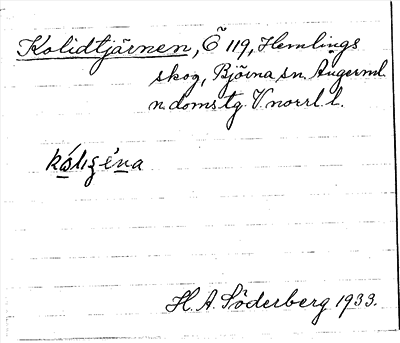 Kolidtjärnen, Ö 119, Hemlings
skog, Björna sn. Ångerml.
n. domstg. V. norrl. l.
H. A. Söderberg 1933.